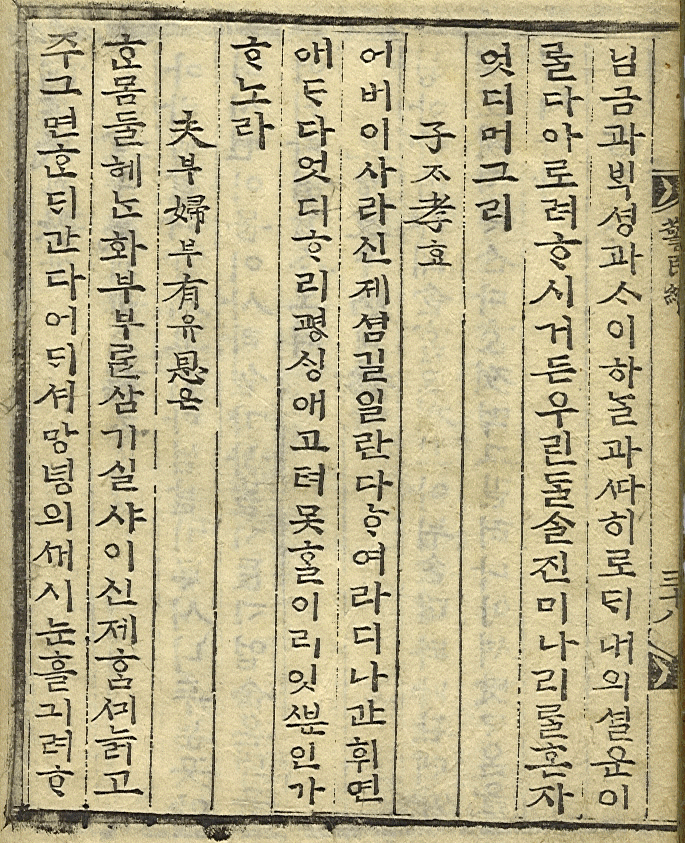 님금과ᄇᆡᆨ셩과ᄉᆞ이하ᄂᆞᆯ과ᄯᅡ히로ᄃᆡ내의셜운이
ᄅᆞᆯ다아로려ᄒᆞ시거든우린ᄃᆞᆯᄉᆞᆯ진미나리ᄅᆞᆯ혼자
엇디머그리
子ᄌᆞ孝효
어버이사라신제셤길일란다ᄒᆞ여라디나간휘면
애ᄃᆞ다엇디ᄒᆞ리평ᄉᆡᆼ애고텨못ᄒᆞᆯ이리잇ᄲᅮᆫ인가
ᄒᆞ노라
夫부婦부有유恩은
ᄒᆞᆫ몸둘헤ᄂᆞᆫ화부부ᄅᆞᆯ삼기실샤이신제ᄒᆞᆷᄭᅴ늙고
주그면ᄒᆞᆫᄃᆡ간다어ᄃᆡ셔망녕의ᄭᅥ시눈흘긔려ᄒᆞ